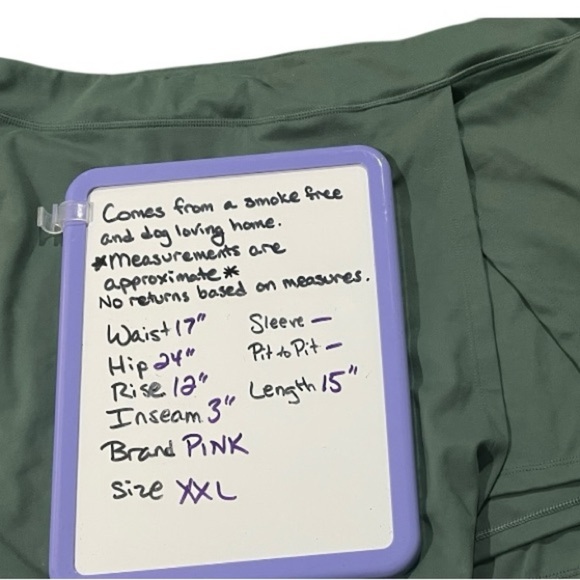 Comes from a smoke free
and dog loving home.
*Measurements are
approximate*
No returns based on measures.
Waist 17"
Sleeve —
Hip 24"
Pit to Pit —
Rise 12"
Length 15"
Inseam 3"
Brand PINK
Size XXL